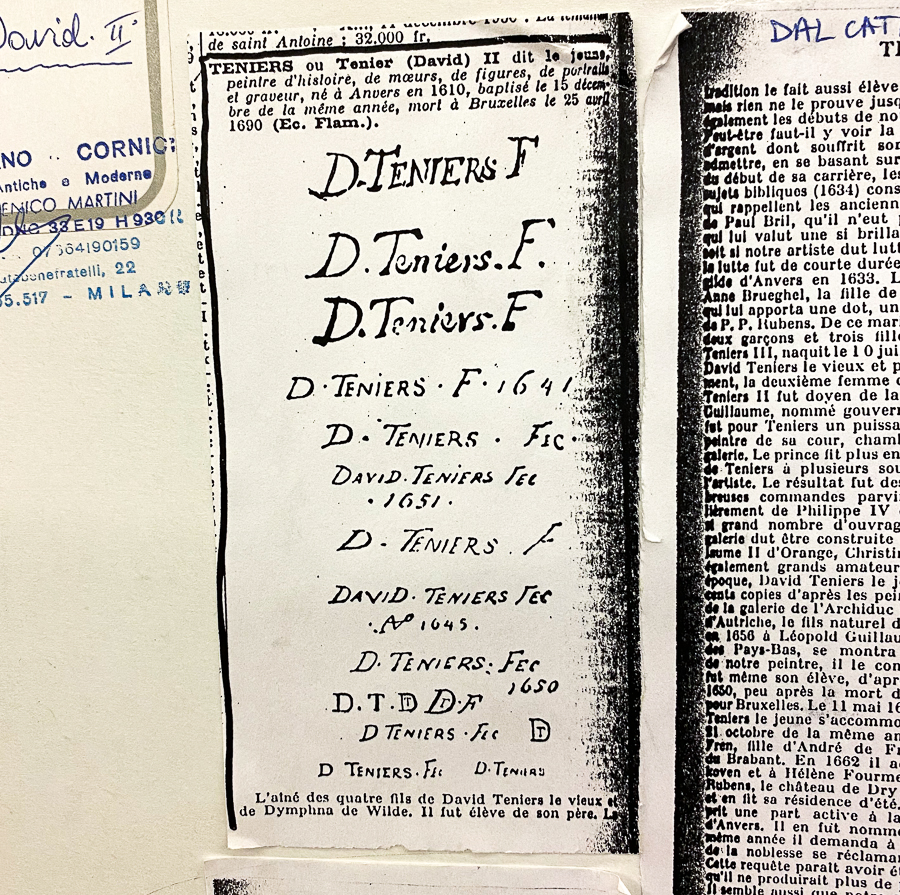 David. II
CORNICI
Antiche e Moderne
MARTINI
33E19
22
- MILANO
de saint Antoine ; 32.000 fr.
TENIERS ou Tenier (David) II dit le jeune,
peintre d'histoire, de mœurs, de figures, de portraits
et graveur, né à Anvers en 1610, baptisé le 15 décem-
bre de la même année, mort à Bruxelles le 25 avril
1690 (Ec. Flam.).
D.TENIERS F
D.Teniers.F.
D.Teniers.F
D·TENIERS·F·1641
D·TENIERS·FEC·
DAVID·TENIERS FEC
·1651·
D·TENIERS.F
DAVID·TENIERS FEC
1645.
D·TENIERS·FEC
1650
D.T.D D·F
D TENIERS·FEC D
D TENIERS·FEC D·TENIERS
L'aîné des quatre fils de David Teniers le vieux et
de Dymphna de Wilde. Il fut élève de son père. La
DAL CAT
tradition le fait aussi élève
mais rien ne le prouve
également les débuts de
Peut-être faut-il y voir la
d'argent dont souffrit
admettre, en se basant sur
du début de sa carrière, les
sujets bibliques (1634)
qui rappellent les
de Paul Bril, qu'il n'eut
qui lui valut une si
soit si notre artiste dut
la lutte fut de courte durée
gilde d'Anvers en 1633.
Anne Brueghel, la fille de
qui lui apporta une dot, un
de P. P. Rubens. De ce
deux garçons et trois
Teniers III, naquit le 10
David Teniers le vieux et
ment, la deuxième femme
Teniers II fut doyen de la
Guillaume, nommé
fut pour Teniers un
peintre de sa cour,
galerie. Le prince fit plus en
de Teniers à plusieurs
l'artiste. Le résultat fut
breuses commandes
lièrement de Philippe IV
si grand nombre
galerie dut être construite
laume II d'Orange,
également grands
époque, David Teniers le
cents copies d'après les
de la galerie de l'Archiduc
d'Autriche, le fils naturel
en 1656 à Léopold
des Pays-Bas, se montra
de notre peintre, il le
fut même son élève,
1650, peu après la mort
pour Bruxelles. Le 11 mai
Teniers le jeune
21 octobre de la même
Fren, fille d'André de
du Brabant. En 1662 il
koven et à Hélène
Rubens, le château de Dry
et en fit sa résidence d'été.
prit une part active à la
d'Anvers. Il en fut
même année il demanda à
de la noblesse se
Cette requête paraît avoir
qu'il ne produirait plus de
Il semble aussi que notre